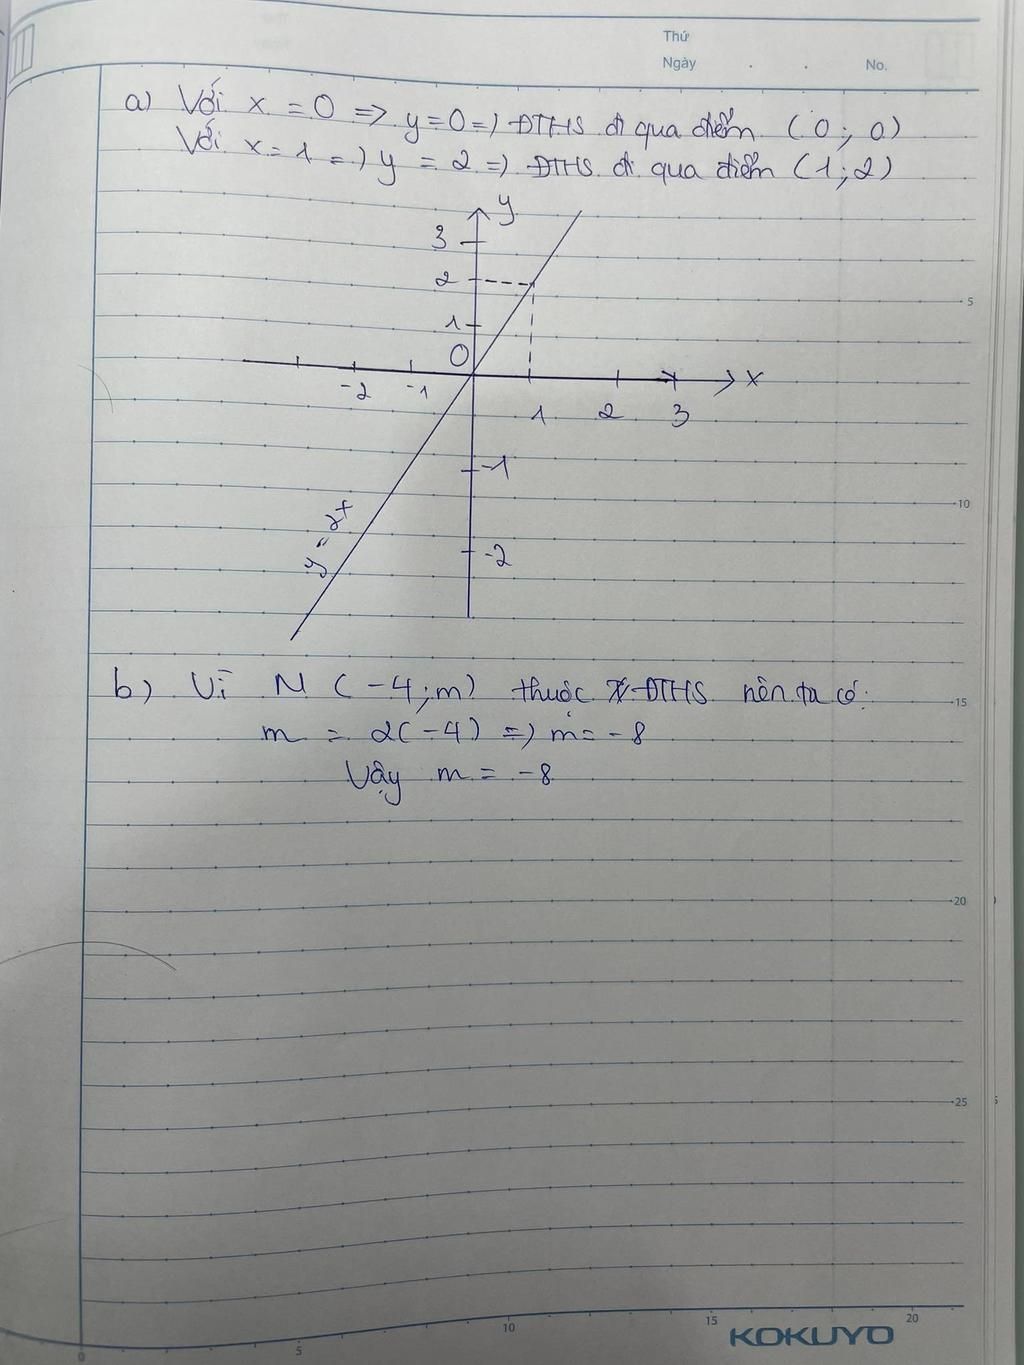 Thứ
Ngày . . No.
a) Với x = 0 => y = 0 => ĐTHS đi qua điểm (0 ; 0)
Với x = 1 => y = 2 => ĐTHS đi qua điểm (1 ; 2)
y
3
2
1
O
x
-2 -1 1 2 3
-1
-2
y = 2x
b) Vì N (-4 ; m) thuộc ĐTHS nên ta có:
m = 2(-4) => m = -8
Vậy m = -8
5
10
15
20
25
0 5 10 15 20
KOKUYO